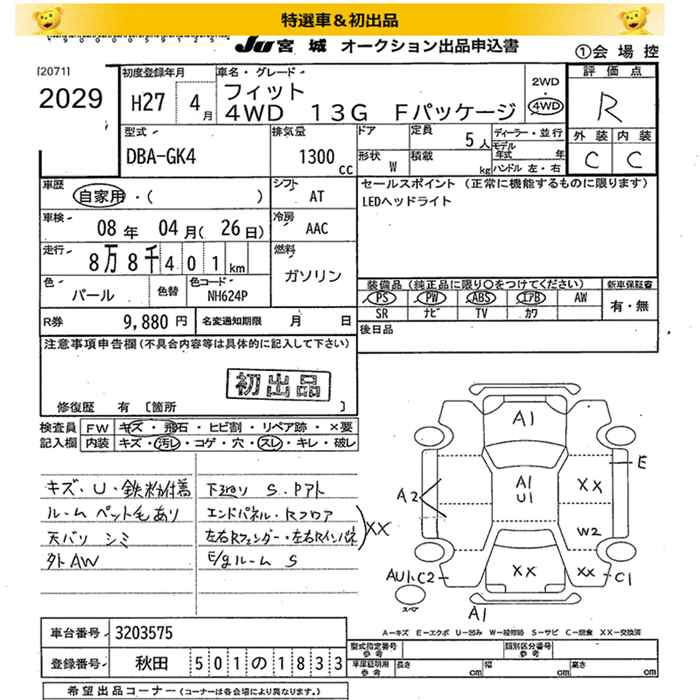 特選車＆初出品
JU 宮城 オークション出品申込書
①会場控
[2071]
2029
初度登録年月
H27 4月
車名・グレード
フィット
4WD 13G Fパッケージ
2WD
・
4WD
評価点
R
外装 内装
C C
型式
DBA-GK4
排気量
1300cc
ドア
定員
5人
形状
W
積載
kg
ディーラー・並行
モデル年式 年
ハンドル 左・右
車歴
自家用・( )
シフト
AT
セールスポイント (正常に機能するものに限ります)
LEDヘッドライト
車検
08年 04月(26日)
冷房
AAC
走行
8万8千401km
燃料
ガソリン
色
パール
色替
色コード
NH624P
装備品 (純正品に限り○をつけてください)
PS PW ABS エアB AW
SR ナビ TV カワ
新車保証書
有・無
R券 9,880円
名変通知期限 月 日
後日品
注意事項申告欄(不具合内容等は具体的に記入して下さい)
初出品
修復歴 有 〔箇所 〕
検査員記入欄
FW キズ・飛石・ヒビ割・リペア跡・×要
内装 キズ・汚レ・コゲ・穴・スレ・キレ・破レ
キズ・U・鉄粉付着
ルーム ペット毛あり
天バリ シミ
外AW
下廻り S・Pアト
エンドパネル・Rフロア
左右Rフェンダー・左右Rインパネ
XX
E/gルーム S
A1
E
A2
A1
U1
XX
W2
AU1・C2
XX
XX
C1
スペア
A1
A－キズ E－エクボ U－凹み W－補修跡 S－サビ C－腐食 XX－交換済
車台番号 3203575
登録番号 秋田 501の1833
型式指定番号 参考
類別区分番号 参考
車庫証明用 参考
長さ cm 幅 cm 高さ cm
希望出品コーナー (コーナーは各会場により異なります。)